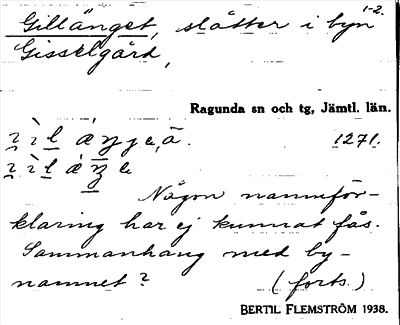 1-2.
Gillänget, slåtter i byn
Gisselgård,
Ragunda sn och tg, Jämtl. län.
1271.
Någon namnför-
klaring har ej kunnat fås.
Sammanhang med by-
namnet? (forts.)
BERTIL FLEMSTRÖM 1938.